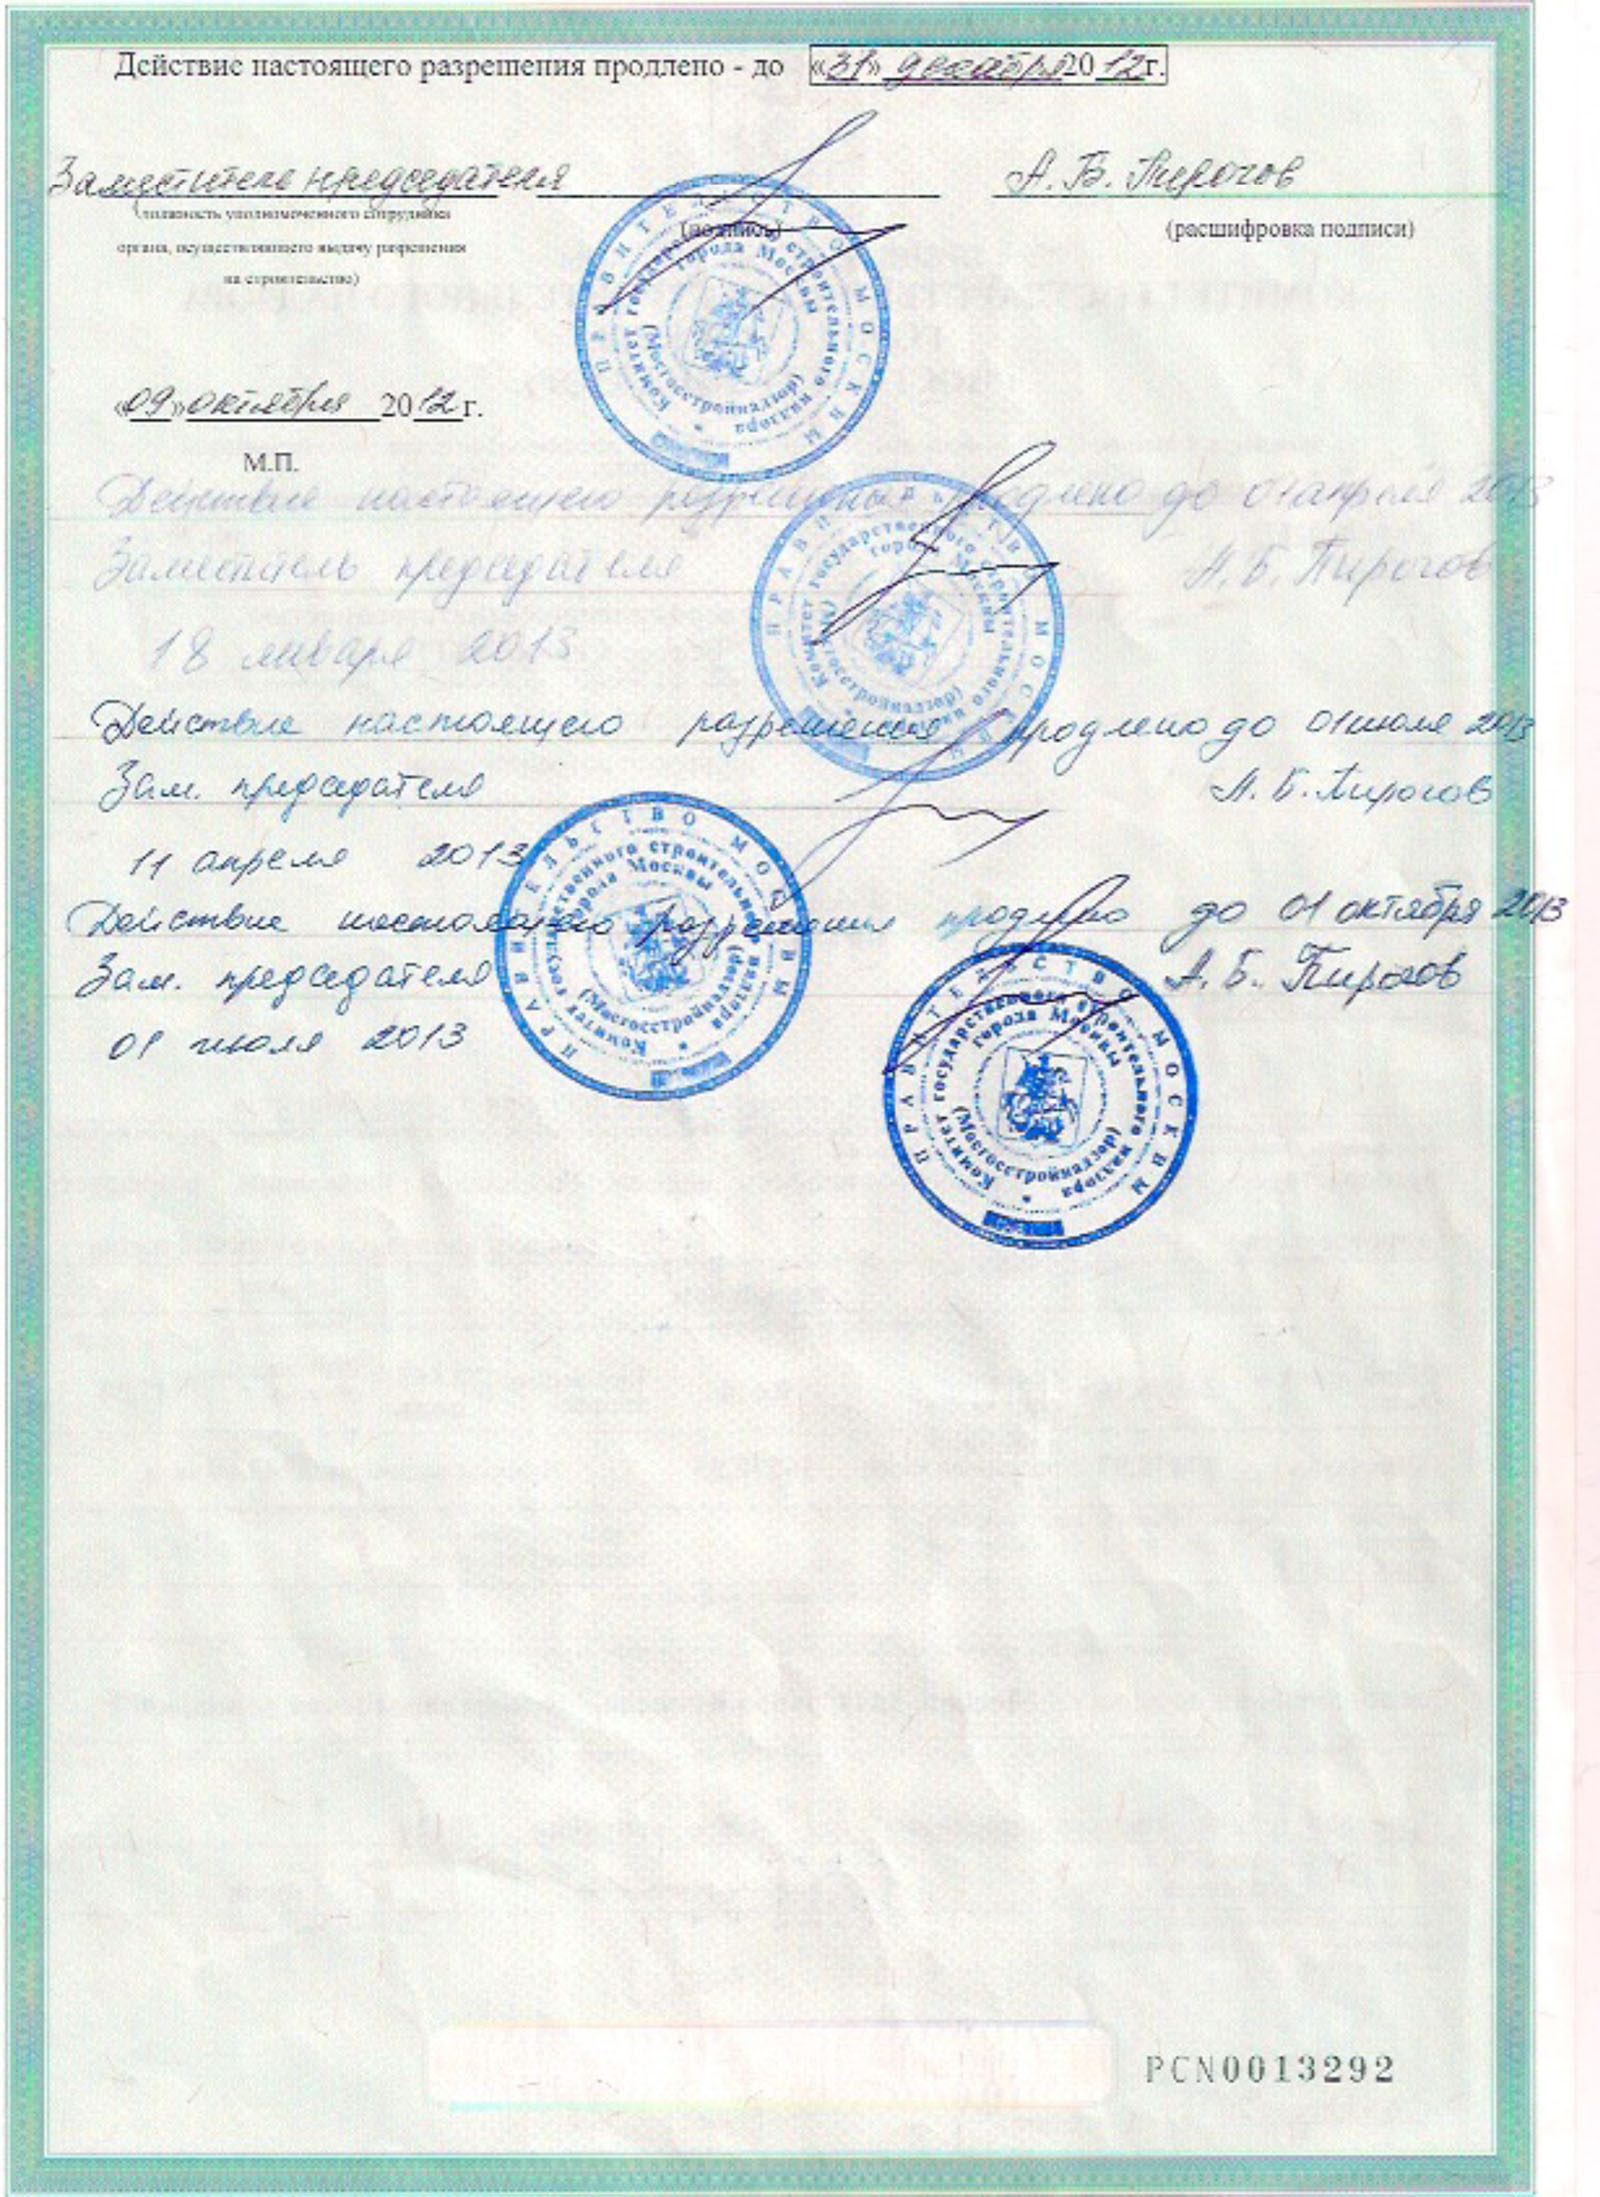 Действие настоящего разрешения продлено - до «31» декабря 2012г.
Заместитель председателя А. Б. Пирогов
(должность уполномоченного сотрудника (подпись) (расшифровка подписи)
органа, осуществляющего выдачу разрешения
на строительство)
ПРАВИТЕЛЬСТВО МОСКВЫ
Комитет государственного строительного надзора
города Москвы
(Мосгосстройнадзор)
«09» октября 2012 г.
М.П.
Действие настоящего разрешения продлено до 01 апреля 2013
Заместитель председателя А. Б. Пирогов
ПРАВИТЕЛЬСТВО МОСКВЫ
Комитет государственного строительного надзора
города Москвы
(Мосгосстройнадзор)
18 января 2013
Действие настоящего разрешения продлено до 01 июля 2013
Зам. председателя А. Б. Пирогов
11 апреля 2013
ПРАВИТЕЛЬСТВО МОСКВЫ
Комитет государственного строительного надзора
города Москвы
(Мосгосстройнадзор)
Действие настоящего разрешения продлено до 01 октября 2013
Зам. председателя А. Б. Пирогов
01 июля 2013
ПРАВИТЕЛЬСТВО МОСКВЫ
Комитет государственного строительного надзора
города Москвы
(Мосгосстройнадзор)
PCN0013292